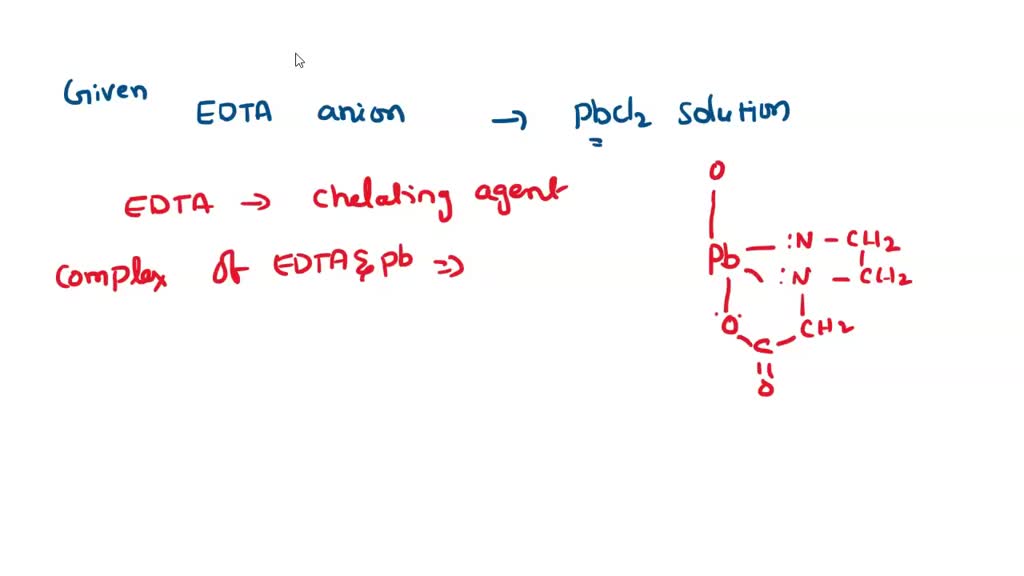 Given
EDTA anion → PbCl2 solution
EDTA → chelating agent
complex of EDTA & Pb ⇒
O
Pb — :N — CH2
:N — CH2
O
C — CH2
O